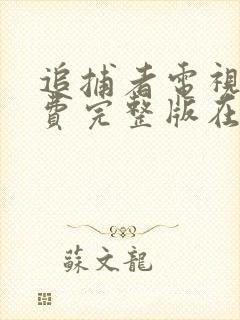 追捕者電視
費完整版在
蘇文龍